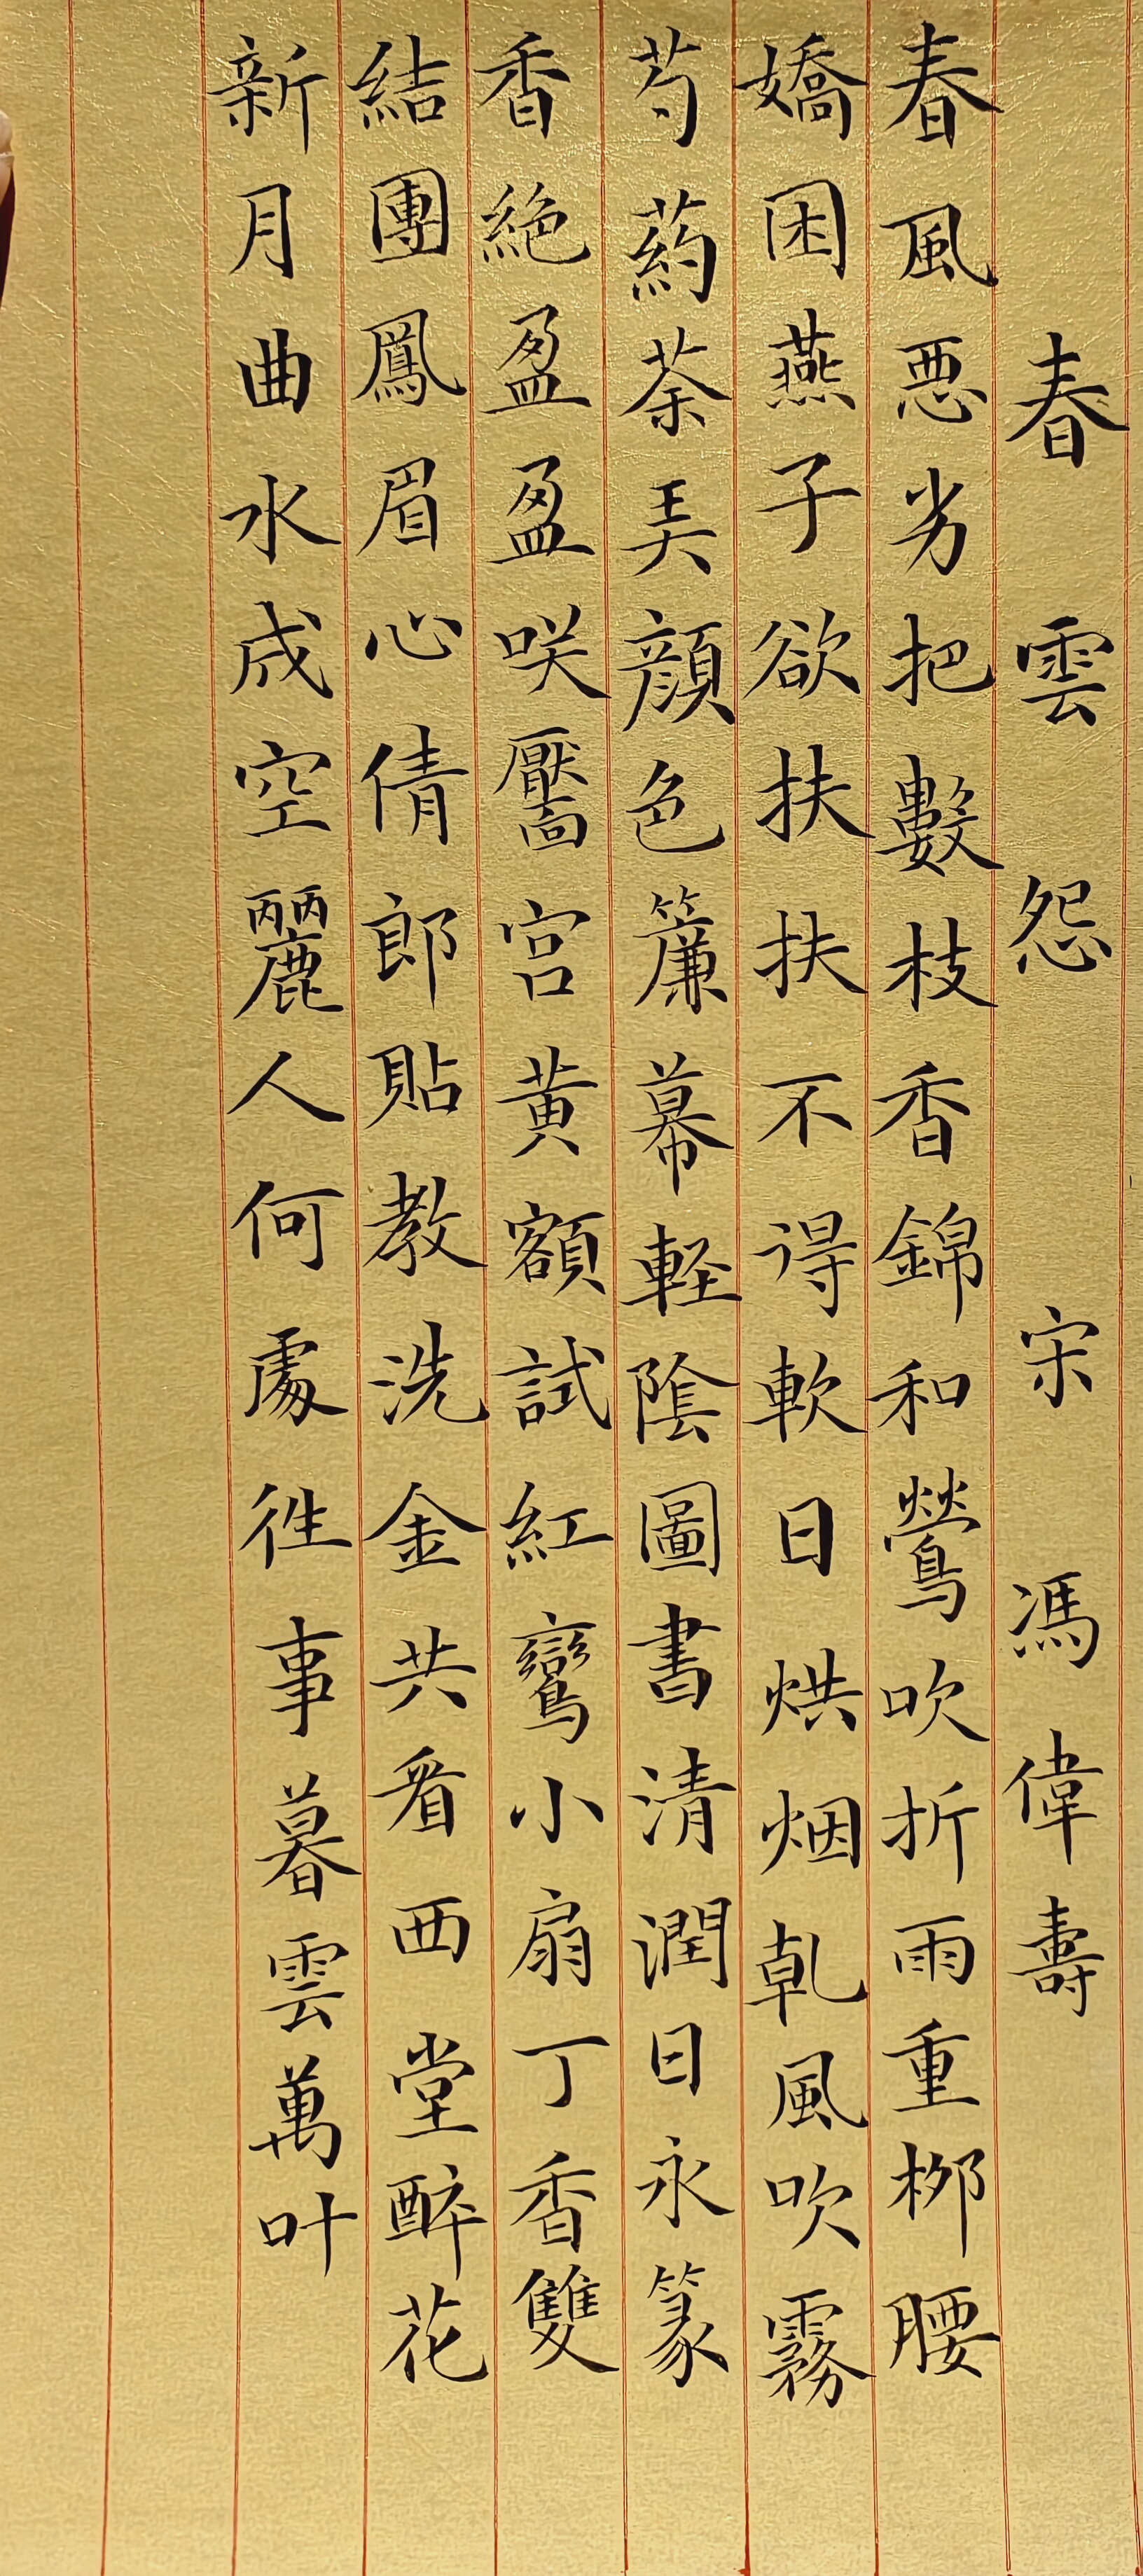 春雲怨 宋 馮偉壽
春風惡劣把數枝香錦和鶯吹折雨重柳腰
嬌困燕子欲扶扶不得軟日烘烟乾風吹霧
芍葯荼美顏色簾幕輕陰圖書清潤日永篆
香絕盈盈咲靨宮黃額試紅鸞小扇丁香雙
結團鳳眉心倩郎貼教洗金共看西堂醉花
新月曲水成空麗人何處往事暮雲萬叶